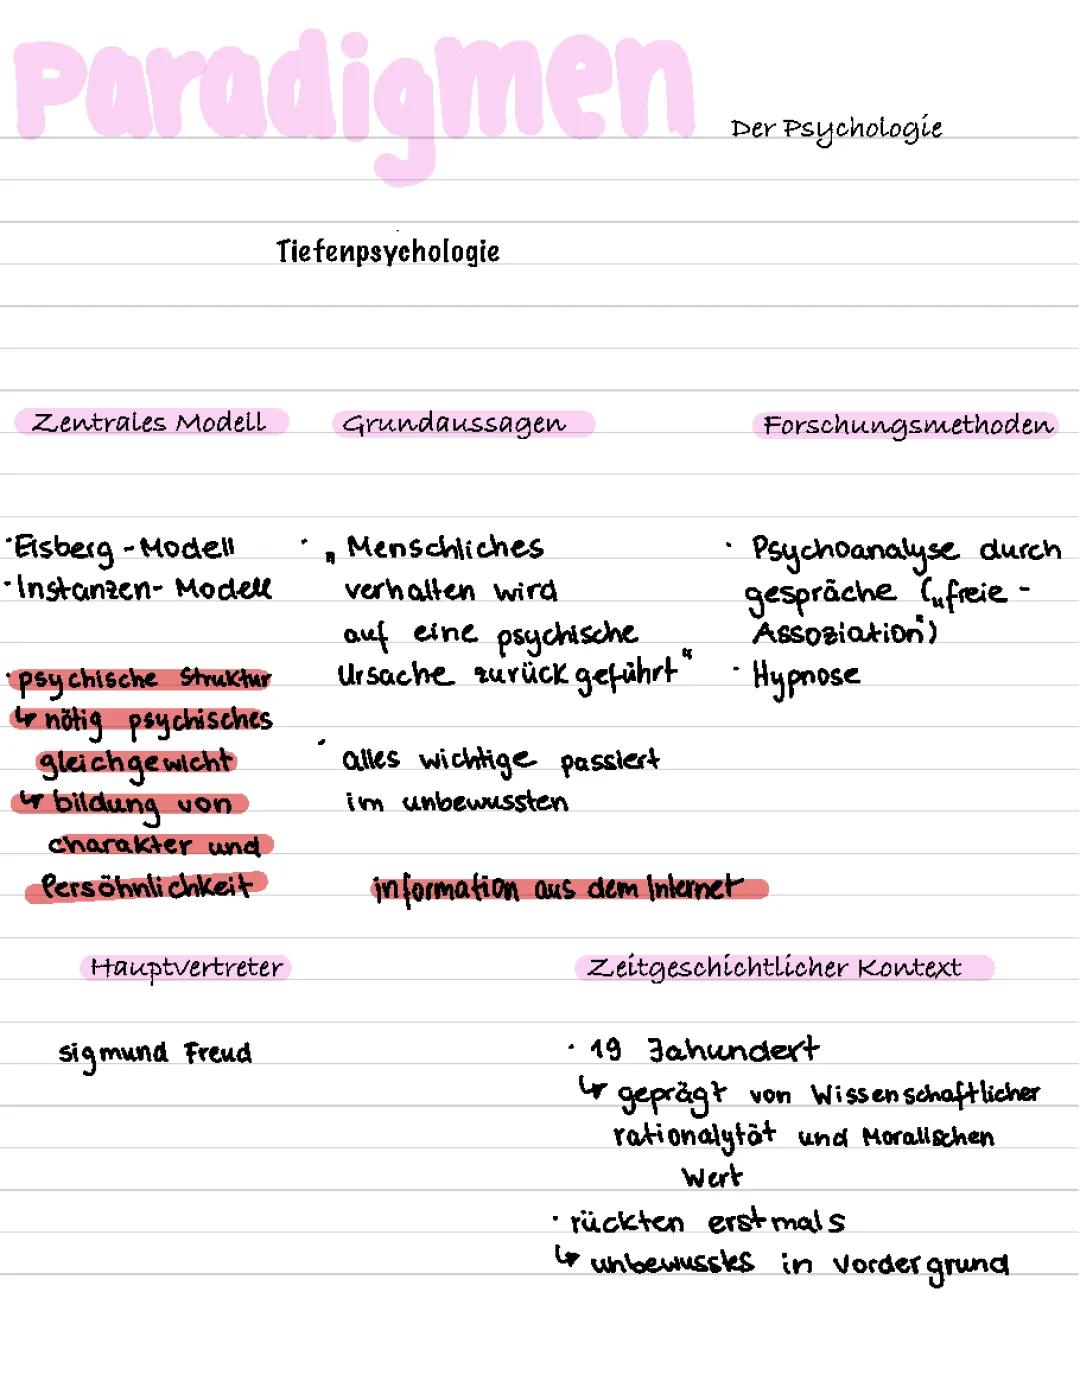 Paradigmen
Der Psychologie
Tiefenpsychologie
Zentrales Modell
·Eisberg-Modell
·Instanzen-Modell
·psychische Struktur
↳ nötig psychisches
gleichgewicht
↳ bildung von
charakter und
Persöhnlichkeit
Grundaussagen
· „Menschliches
verhalten wird
auf eine psychische
Ursache zurückgeführt“
· alles wichtige passiert
im unbewussten
information aus dem Internet
Forschungsmethoden
· Psychoanalyse durch
gespräche („freie-
Assoziation")
· Hypnose
Hauptvertreter
sigmund Freud
Zeitgeschichtlicher Kontext
· 19 Jahundert
↳ geprägt von Wissenschaftlicher
rationalytät und Moralischen
Wert
· rückten erstmals
↳ unbewusstes in Vordergrund